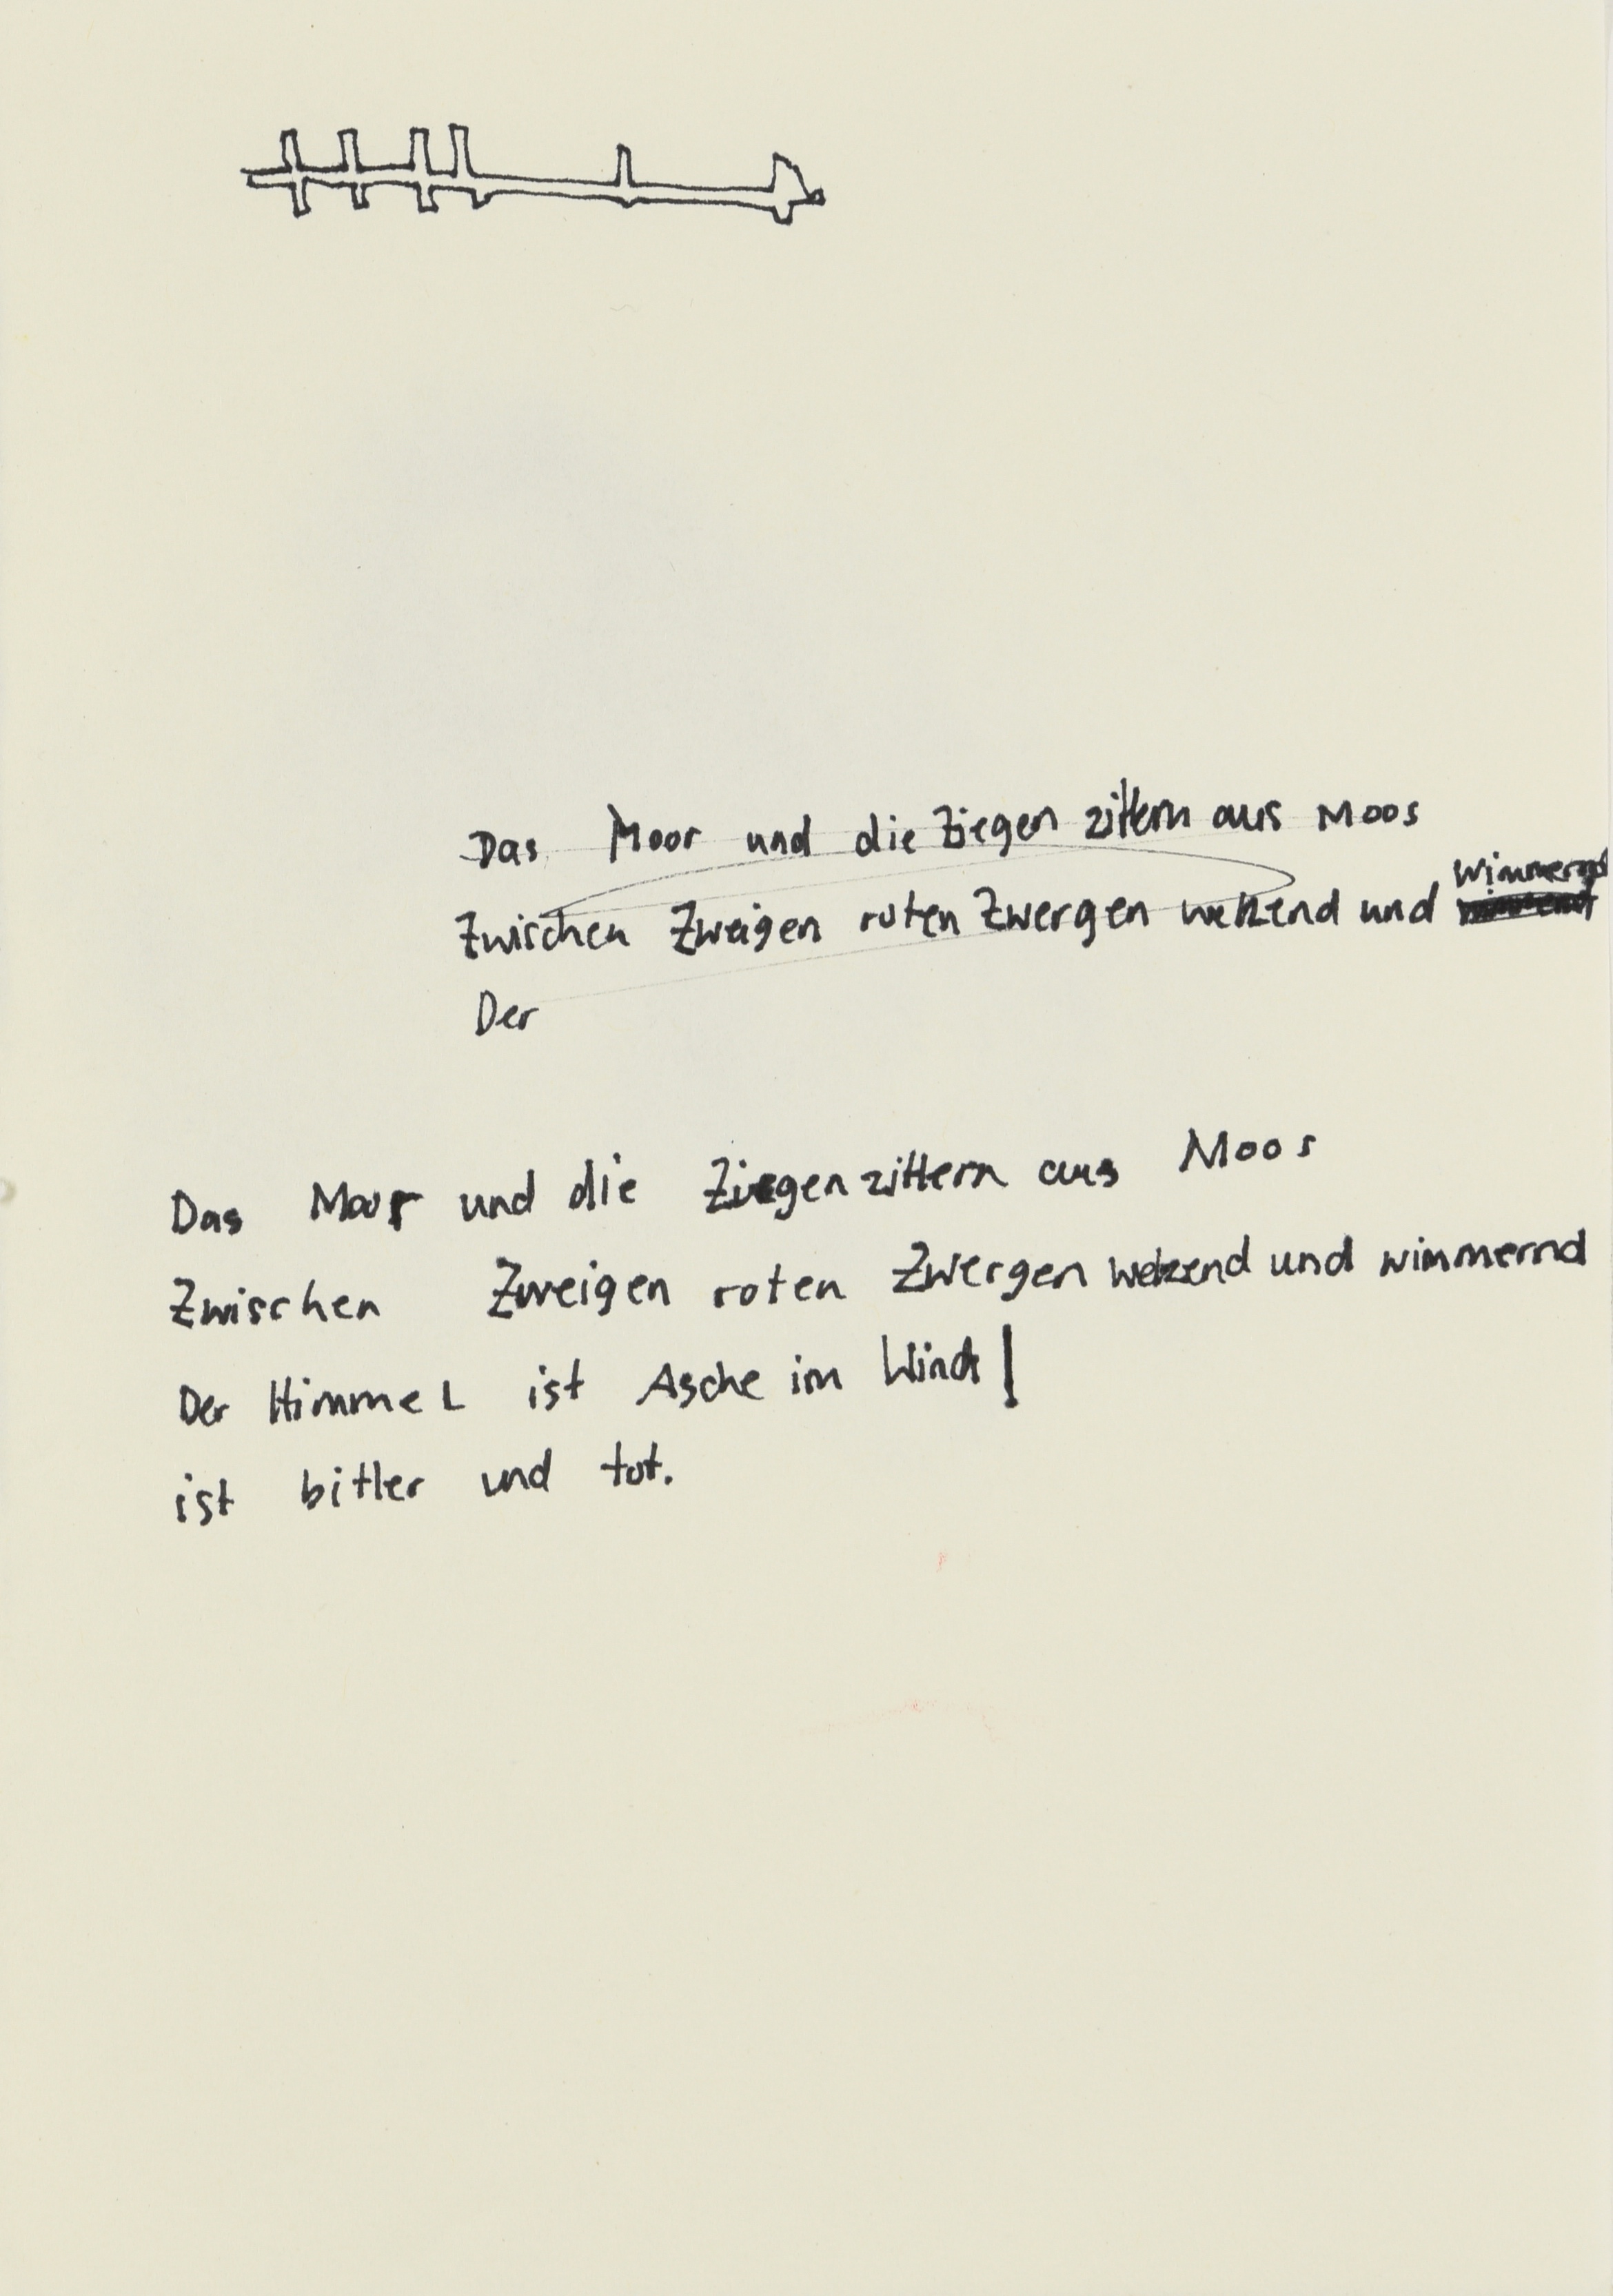 Das Moor und die Ziegen zittern aus Moos
wimmernd
Zwischen Zweigen roten Zwergen welzend und
Der
Das Moor und die Ziegen zittern aus Moos
Zwischen Zweigen roten Zwergen welzend und wimmernd
Der Himmel ist Asche im Wind!
ist bitter und tot.